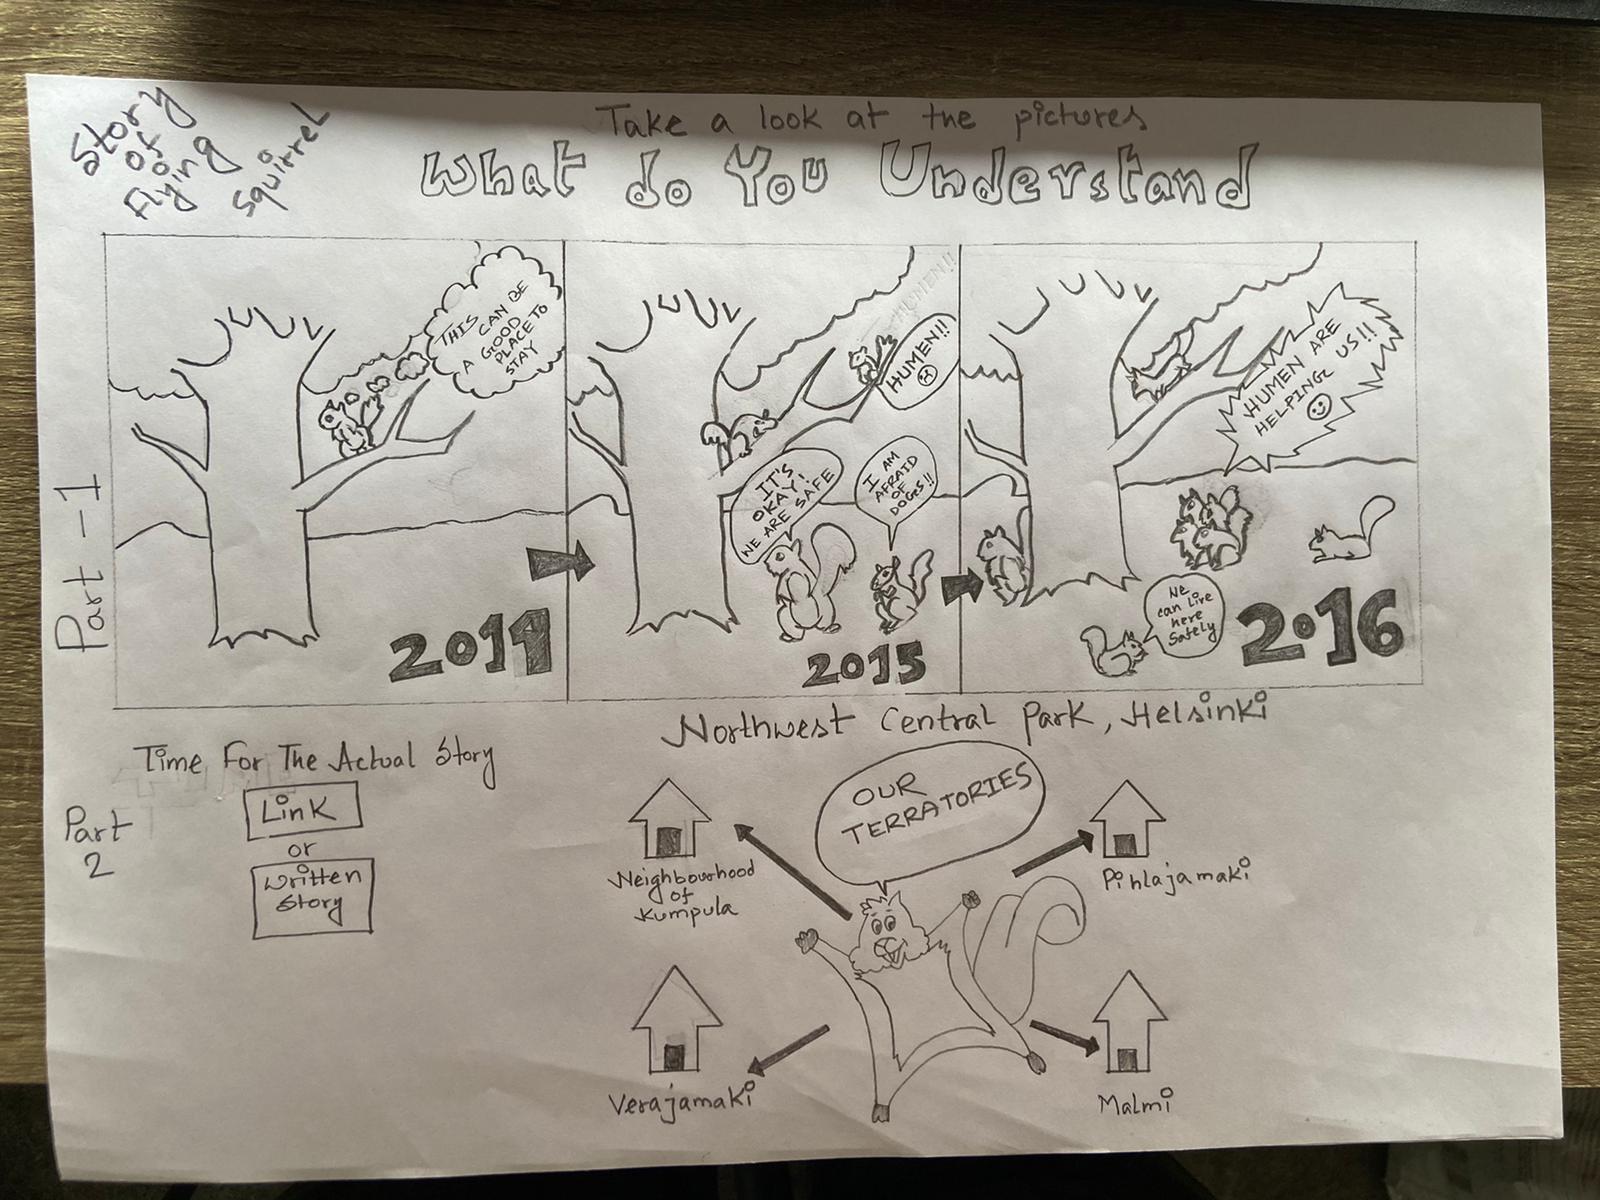 Story
of
Flying
Squirrel
Take a look at the pictures
What do You Understand
Part-1
THIS
CAN BE
A GOOD
PLACE TO
STAY
2011
HUMEN!!
HUMEN!!
IT'S
OKAY!
WE ARE SAFE
I AM
AFRAID
OF
DOGES!!
2015
HUMEN ARE
HELPING US!!
We
can live
here
Safely
2016
Northwest Central Park, Helsinki
Time For The Actual Story
Part
2
Link
or
Written
Story
OUR
TERRATORIES
Neighbourhood
of
Kumpula
Pihlajamaki
Verajamaki
Malmi